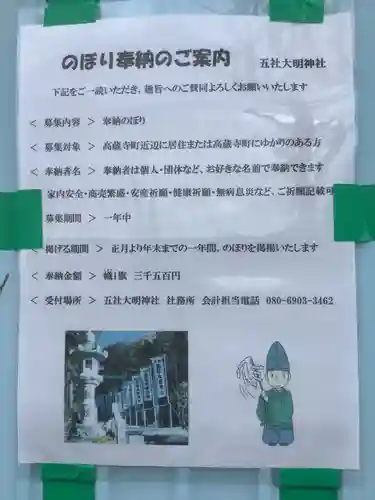 のぼり奉納のご案内　五社大明神社
下記をご一読いただき、趣旨へのご賛同よろしくお願いいたします
＜ 募集内容 ＞ 奉納のぼり
＜ 募集対象 ＞ 高蔵寺町近辺に居住または高蔵寺町にゆかりのある方
＜ 奉納者名 ＞ 奉納者は個人・団体など、お好きな名前で奉納できます
家内安全・商売繁盛・安産祈願・健康祈願・無病息災など、ご祈願記載可
募集期間 ＞ 一年中
＜ 掲げる期間 ＞ 正月より年末までの一年間、のぼりを掲揚いたします
＜ 奉納金額 ＞ 幟1旗 三千五百円
＜ 受付場所 ＞ 五社大明神社 社務所 会計担当電話 080-6903-3462